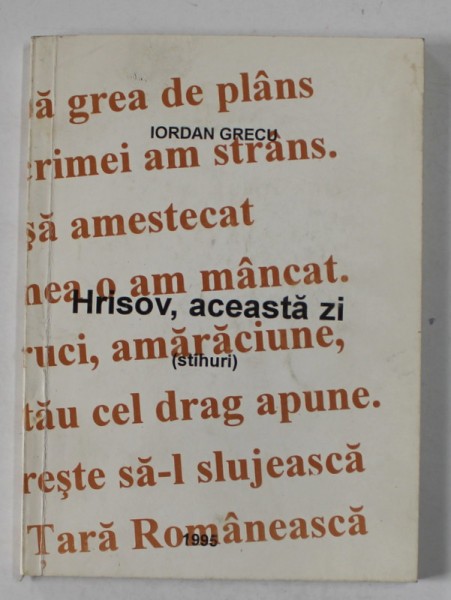 ă grea de plâns
IORDAN GRECU
crimei am strâns.
șă amestecat
nea o am mâncat.
Hrisov, această zi
ruci, amărăciune,
(stihuri)
tău cel drag apune.
rește să-l slujească
Țară Românească
1995